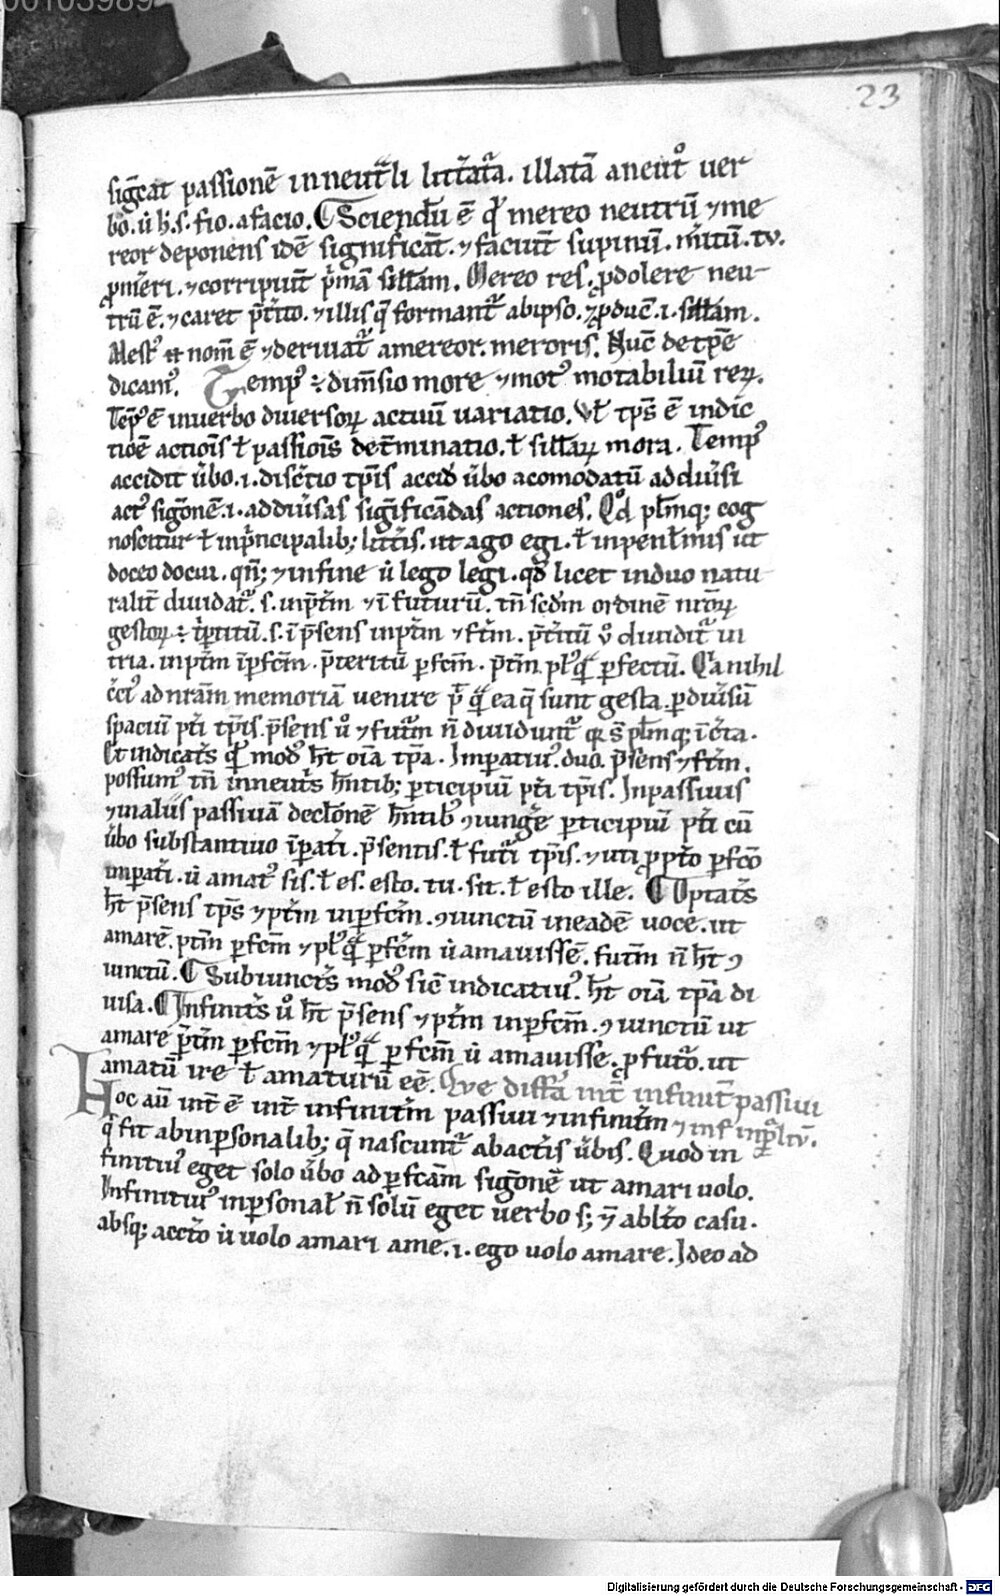 00103989
23
sig̅cat passionē in neut͛li litt͛at͛a. illatā a neut͛o uer
bo. ů h̅. s. fio. a facio. Sciendū ē qd̕ mereo neutrū ⁊ me
reor deponens idē significāt. ⁊ faciūt supinū. m͛itū. tu.
ꝓmeri. ⁊ corripiūt p͛mā sillam̅. Mereo res. ꝓ dolere neu
trū ē. ⁊ caret p̅t͛ito. ⁊ illis q̅ formant᷑ ab ipso. ⁊ ꝓduc̅. i. sillam̅.
 ⁊ nom̅ ē ⁊ deriuat᷑ a mereor. meroris. Nūc de tp̅e
dicam᷒. Temp᷒ ÷ dim̅sio more ⁊ mot᷒ motabiliū reꝝ.
Tēp᷒ ē in uerbo diuersoꝝ actuū uariatio. Vl̕ tp̅s ē indic
tioē actiois̅ l̕ passiois̅ det͛minatio. l̕ sillaꝝ mora. Temp᷒
accidit u͛bo. i. disc̅tio tp̅is accid̕ u͛bo acomodatū ad diu͛si
act᷒ sig̅onē. i. ad diu͛sas sig̅ificādas actiones. Qd̕ pl̅mq; cog
noscitur l̕ in p͛ncipalib; litt͛is. ut ago egi. l̕ in penl̅timis ut
doceo docui. qn̅; ⁊ in fine ů lego legi. qd̕ licet in duo natu
ralit͛ diuidat᷑. s. in p̅t͛m ⁊ ī futurū. tn̅ scd̅m ordinē nr̅oꝝ
gestoꝝ ÷ t͛ptitū. s. ī p̅sens in p̅t͛m ⁊ ft͛m. p̅t͛itū u͛o diuidit᷑ in
tria. in p̅t͛m īꝑfcm̅. p̅teritū ꝑfcm̅. p̅t͛m pl᷒q̅ ꝑfectū. Qa nihil
 ad nram̅ memoriā uenire p̅t qͣ ea q̅ sunt gesta. ꝑ diu͛sū
spaciū p̅t͛i tp̅is. p̅sens u͛o ⁊ futu͛m n̅ diuidunt᷑ qͣ s̅ pl̅mq; īc͛ta.
Et indicat͛s qd̕ mod᷒ h̅t oīa tp̅a. Imperatiu᷒. duo. p̅sens ⁊ ft͛m.
possum᷒ tn̅ in neut͛is h̅ntib; ꝑticipiū p̅t͛i tp̅is. In passiuis
⁊ in aliis passiuā declon̅ē h̅ntib᷒ ꝯiung͛e ꝑticipiū p̅t͛i cū
u͛bo substantiuo īꝑati. p̅sentis. l̕ futu͛i tp̅is. ⁊ uti ꝓ p̅t͛o ꝑfc̅o
inꝑati. ů amat᷒ sis. l̕ es. esto. tu. sit. l̕ esto ille. Optat͛s
h̅t p̅sens tp̅s ⁊ p̅t͛m inꝑfcm̅. ꝯiunctū in eadē uoce. ut
amarē. p̅t͛m ꝑfcm̅ ⁊ pl᷒q̅ ꝑfcm̅ ů amauissē. fut͛m n̅ h̅t ꝯ
iunctū. Subiunct͛s mod᷒ sic̅ indicatiu᷒. h̅t oīa tp̅a di
uisa. Infinit͛s u͛o h̅t p̅sens ⁊ p̅t͛m inꝑfcm̅. ꝯiunctū ut
amare p̅t͛m ꝑfcm̅ ⁊ pl᷒q̅ ꝑfcm̅ ů amauisse. ꝓ futu͛o. ut
amatū ire l̕ amaturū eē. Que diffa̅ int͛ infinit͛ passiui
Hoc aū int͛ ē int͛ infinitm̅ passiui ⁊ infinitm̅ ⁊ inf inꝑl̅iū.
q̅ fit ab inꝑsonalib; q̅ nascunt᷑ ab act͛is u͛bis. Quod in
finitiu᷒ eget solo u͛bo ad ꝑfcam̅ sig̅onē ut amari uolo.
Infinitiu᷒ inꝑsonal̕ n̅ solū eget uerbo s; ⁊ ablt͛o casu.
absq; acct͛o ů uolo amari a me. i. ego uolo amare. Ideo ad
Digitalisierung gefördert durch die Deutsche Forschungsgemeinschaft - DFG